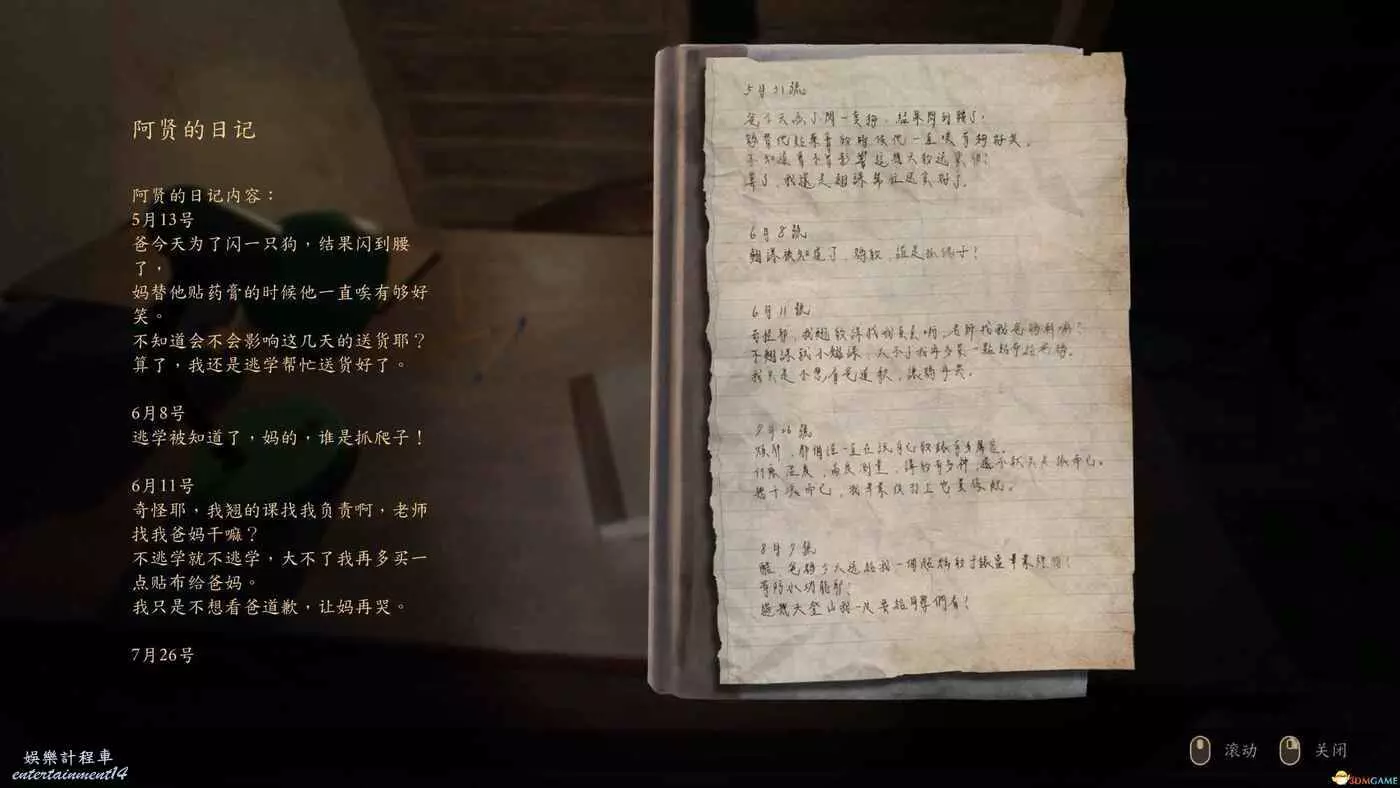 阿贤的日记
阿贤的日记内容：
5月13号
爸今天为了闪一只狗，结果闪到腰
了，
妈替他贴药膏的时候他一直唉有够好
笑。
不知道会不会影响这几天的送货耶？
算了，我还是逃学帮忙送货好了。
6月8号
逃学被知道了，妈的，谁是抓爬子！
6月11号
奇怪耶，我翘的课找我负责啊，老师
找我爸妈干嘛？
不逃学就不逃学，大不了我再多买一
点贴布给爸妈。
我只是不想看爸道歉，让妈再哭。
7月26号
爸今天為了閃一隻狗，結果閃到腰了，
媽替他貼藥膏的時候他一直唉有夠好笑。
不知道會不會影響這幾天的送貨耶？
算了，我還是翹課幫忙送貨好了。
6月8號
翹課被知道了，媽的，誰是抓爬子！
6月11號
奇怪耶，我翹的課找我負責啊，老師找我爸媽幹嘛？
不翹課就不翹課，大不了我再多買一點貼布給爸媽。
我只是不想看爸道歉，讓媽再哭。
7月26號
煩耶，那個誰一直在說自己的錶有多厲害。
8月9號
有防水功能耶！
過幾天登山我一定要給同學們看！
滚动
关闭
娛樂計程車
entertainment14
3DMGAME